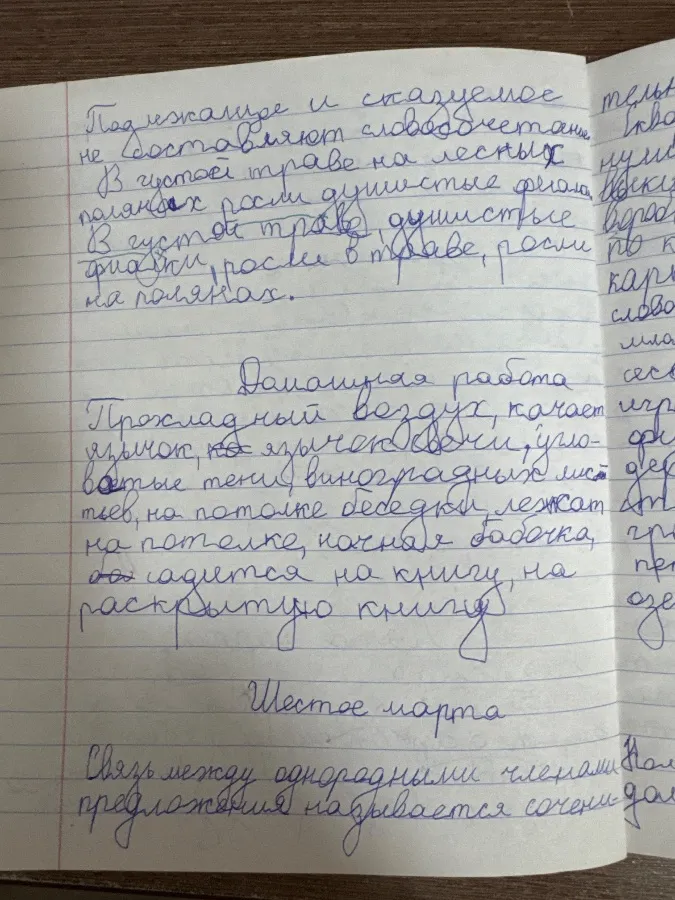 Подлежащее и сказуемое
не составляют словосочетание
В густой траве на лесных
полянах росли душистые фиалки
В густой траве, душистые
фиалки, росли в траве, росли
на полянах.
Домашняя работа
Прохладный воздух, качает
язычок, язычок свечи, угло-
ватые тени, виноградных лис
тьев, на потолке беседки, лежат
на потолке, ночная бабочка,
садится на книгу, на
раскрытую книгу
Шестое марта
Связь между однородными членами
предложения называется сочени-
тельн
нул
вороб
по к
кар
слово
мла
игр
дер
от
гр
пе
озе